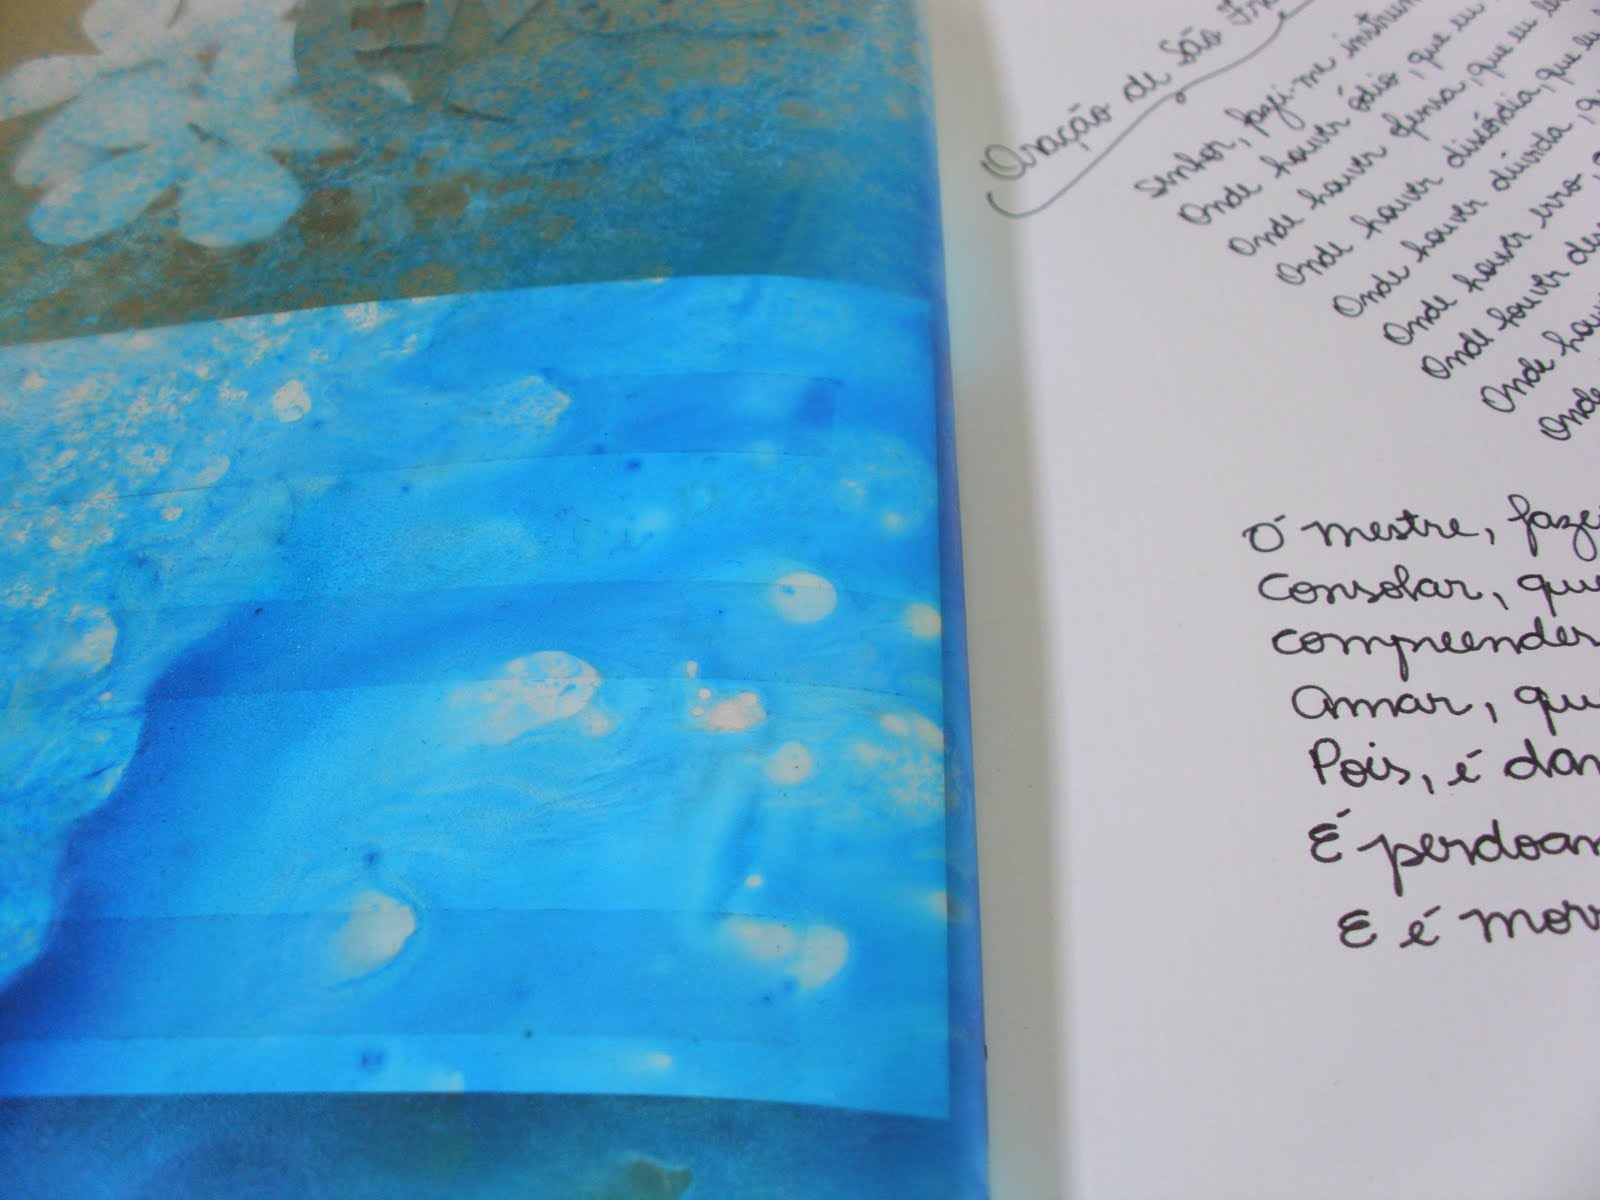 Oração de São Fra
Senhor, fazei-me instrum
Onde houver ódio, que eu
Onde houver ofensa, que eu le
Onde houver discórdia, que eu
Onde houver dúvida, q
Onde houver erro,
Onde houver des
Onde hou
Onde
Ó mestre, fazei
consolar, que
compreender
amar, que
Pois, é dan
É perdoan
E é morr